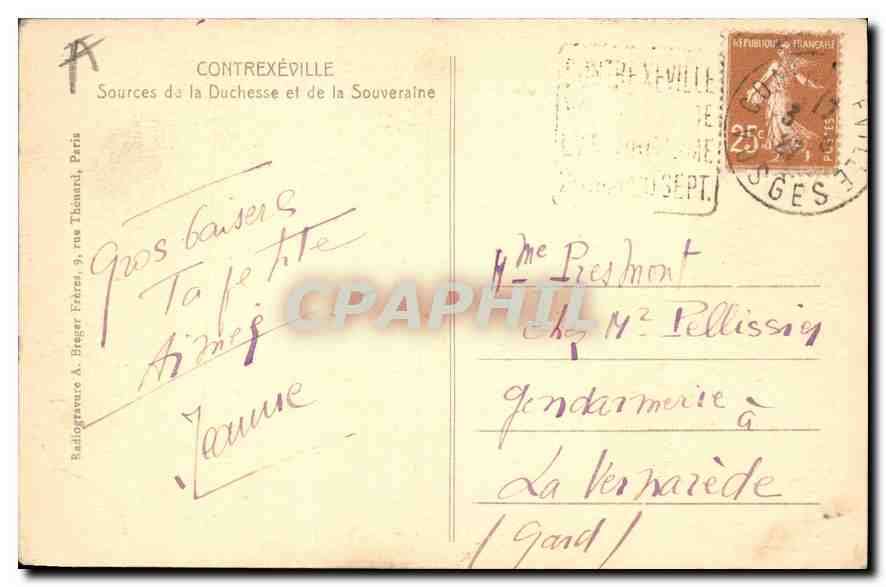 A
CONTREXÉVILLE
Sources de la Duchesse et de la Souveraine
Radiogravure A. Breger Frères, 9, rue Thénard, Paris
Gros baisers
Ta petite
Aimée
Jeanne
RÉPUBLIQUE FRANÇAISE
25c
POSTES
CONTREXEVILLE
SEPT.
VOSGES
Mme Presmont
chez Mr Pellissier
Gendarmerie à
La Vernarède
(Gard)
CPAPHIL